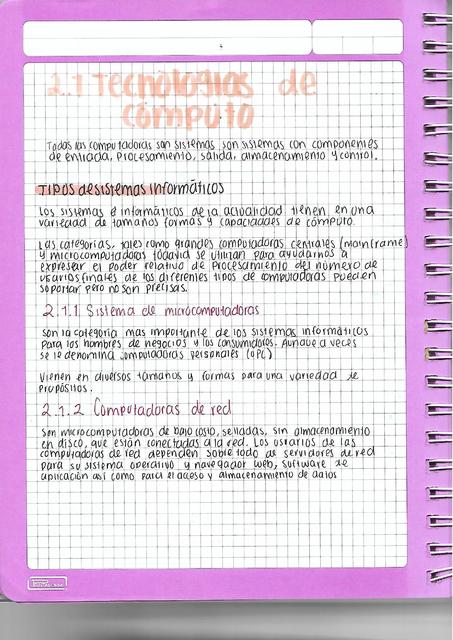 2.1 Tecnologias de
computo
Todas las computadoras son sistemas son sistemas con componentes
de entrada, procesamiento, salida, almacenamiento y control.
TIPOS de sistemas informáticos
Los sistemas e informáticos de la actualidad tienen en una
variedad de tamaños formas y capacidades de cómputo.
Las categorías, tales como grandes computadoras centrales (mainframe)
y microcomputadoras todavía se utilizan para ayudarnos a
expresar el poder relativo de procesamiento del número de
usuarios finales de los diferentes tipos de computadoras pueden
soportar pero no son precisas.
2.1.1 Sistema de microcomputadoras
Son la categoría mas importante de los sistemas informáticos
para los hombres de negocios y los consumidores. Aunque a veces
se le denomina computadoras personales (o PC)
Vienen en diversos tamaños y formas para una variedad de
propósitos.
2.1.2 Computadoras de red
Son microcomputadoras de bajo costo, selladas, sin almacenamiento
en disco, que están conectadas a la red. Los usuarios de las
computadoras de red dependen sobre todo de servidores de red
para su sistema operativo y navegador web, software de
aplicación así como para el acceso y almacenamiento de datos